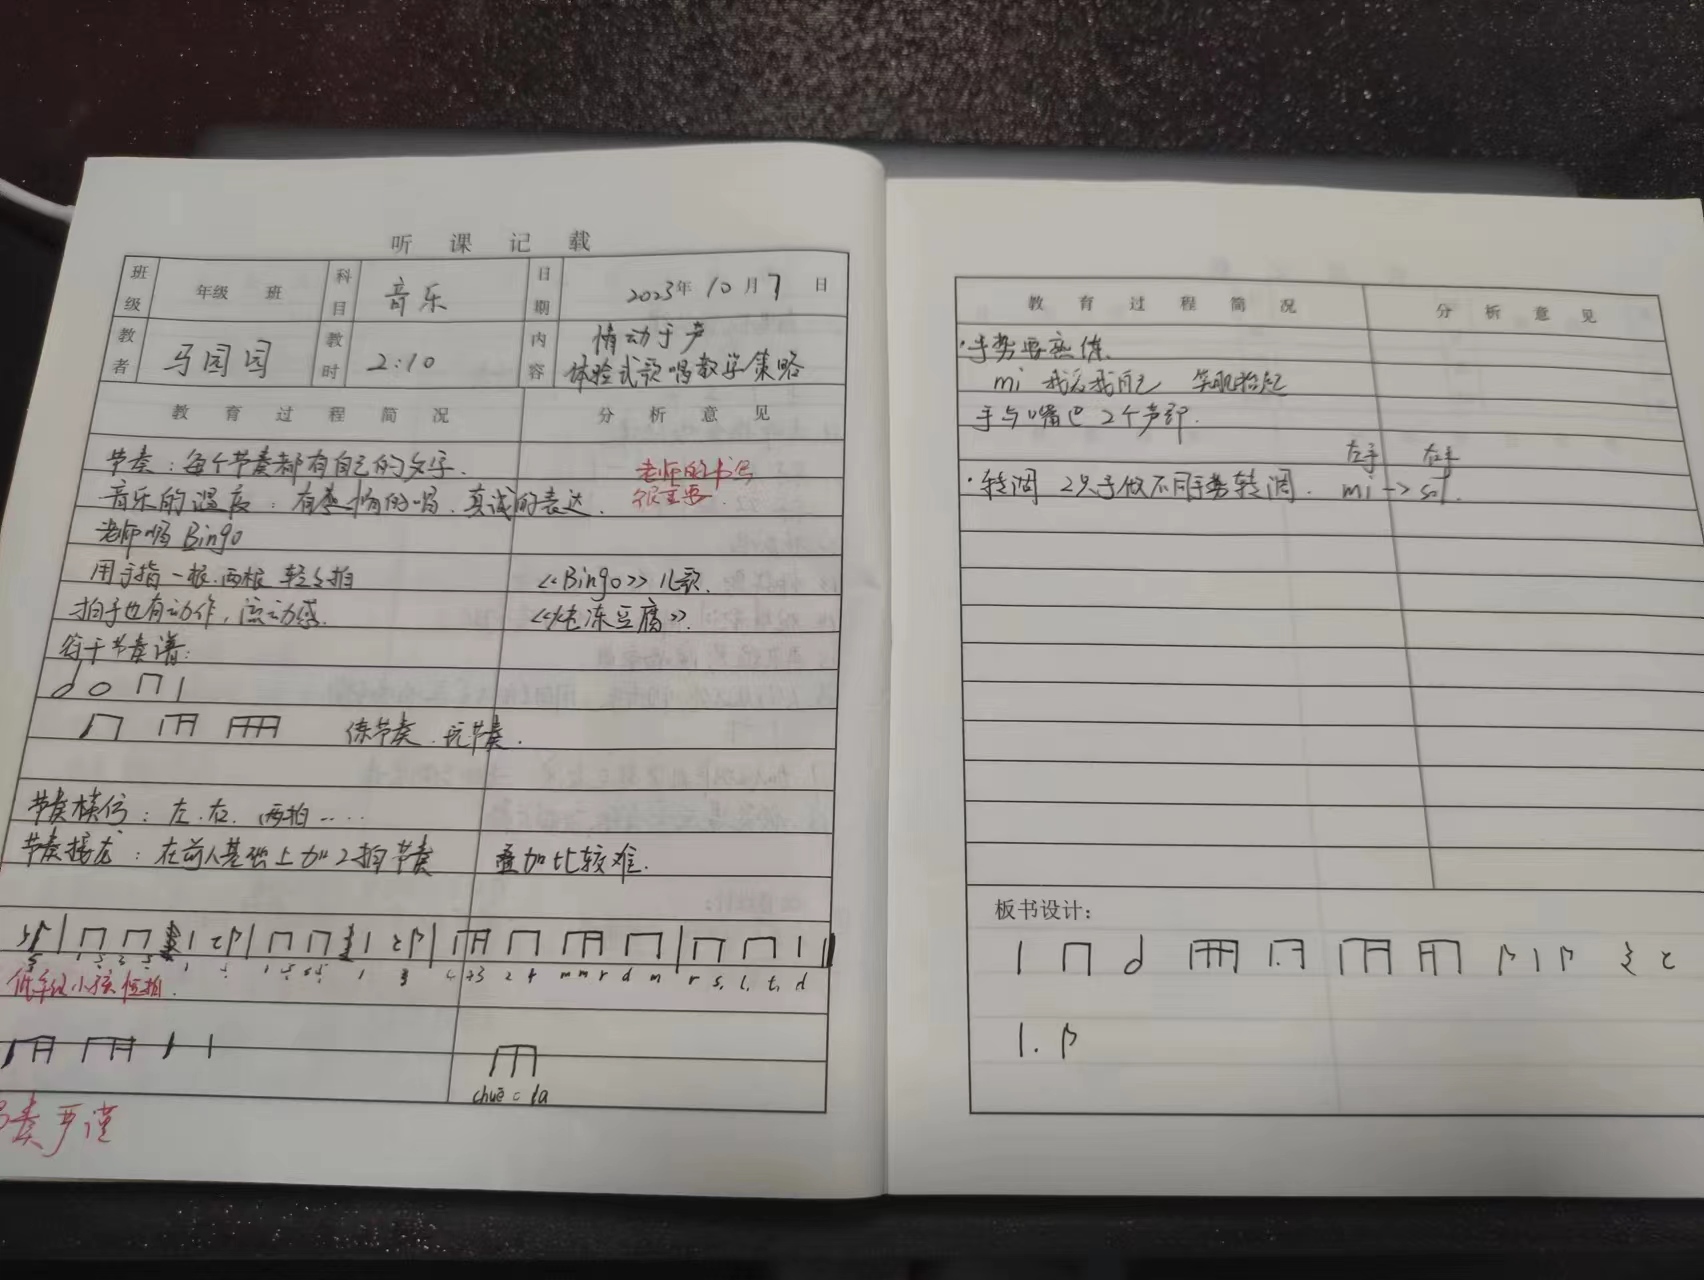 听课记载
班级 年级 班 科目 音乐 日期 2023年10月7日
教者 马园园 教时 2:10 内容 情动于声
体验式歌唱教学策略
教育过程简况 分析意见
节奏:每个节奏都有自己的文字. 老师的书写
音乐的温度:有表情的唱.真诚的表达. 很重要.
老师唱 Bingo
用手指一根.两根 轻轻拍 《Bingo》儿歌.
拍子也有动作,流动感. 冻豆腐》.
符干节奏谱:
练节奏.玩节奏.
节奏模仿:左.右.两拍....
节奏接龙:在前人基础上加2拍节奏 叠加比较难.
m m r d m r s, l, t, d
低年级小孩
chuē = la
奏严谨
教育过程简况 分析意见
·手势要练.
mi 笑肌抬起
手与嘴巴2个声部.
左手 右手
·转调 2只手做不同手势转调. mi -> sol.
板书设计: